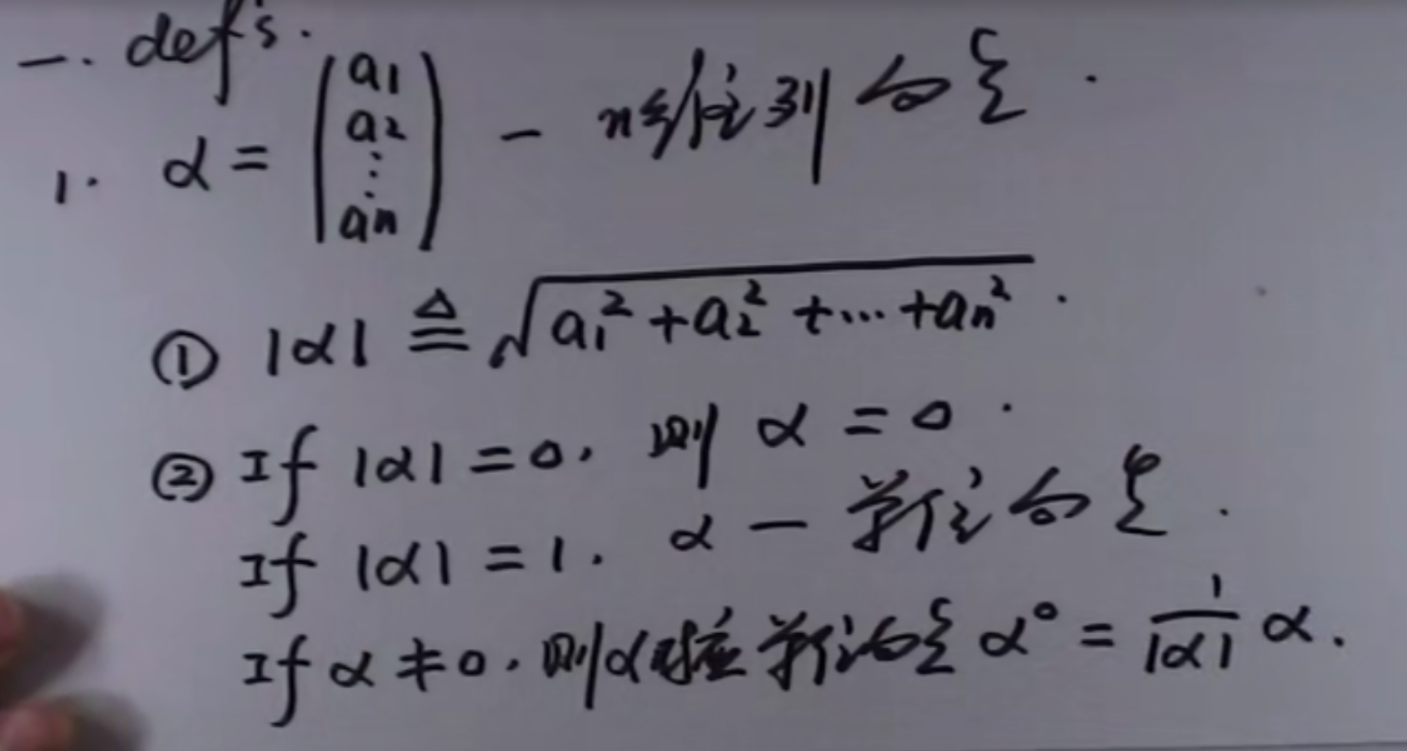 一. def's.
1. α = (a1 a2 ⋮ an) — n维列向量.
① |α| ≜ √(a1² + a2² + ⋯ + an²).
② If |α| = 0, 则 α = 0.
If |α| = 1. α — 单位向量.
If α ≠ 0. 则α对应单位向量 α° = 1/|α| α.